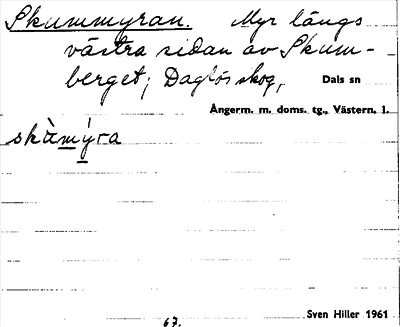 Skummyran. Myr längs
västra sidan av Skum-
berget; Daglös skog,
Dals sn
Ångerm. m. doms. tg., Västern. l.
skàmýra
67.
Sven Hiller 1961